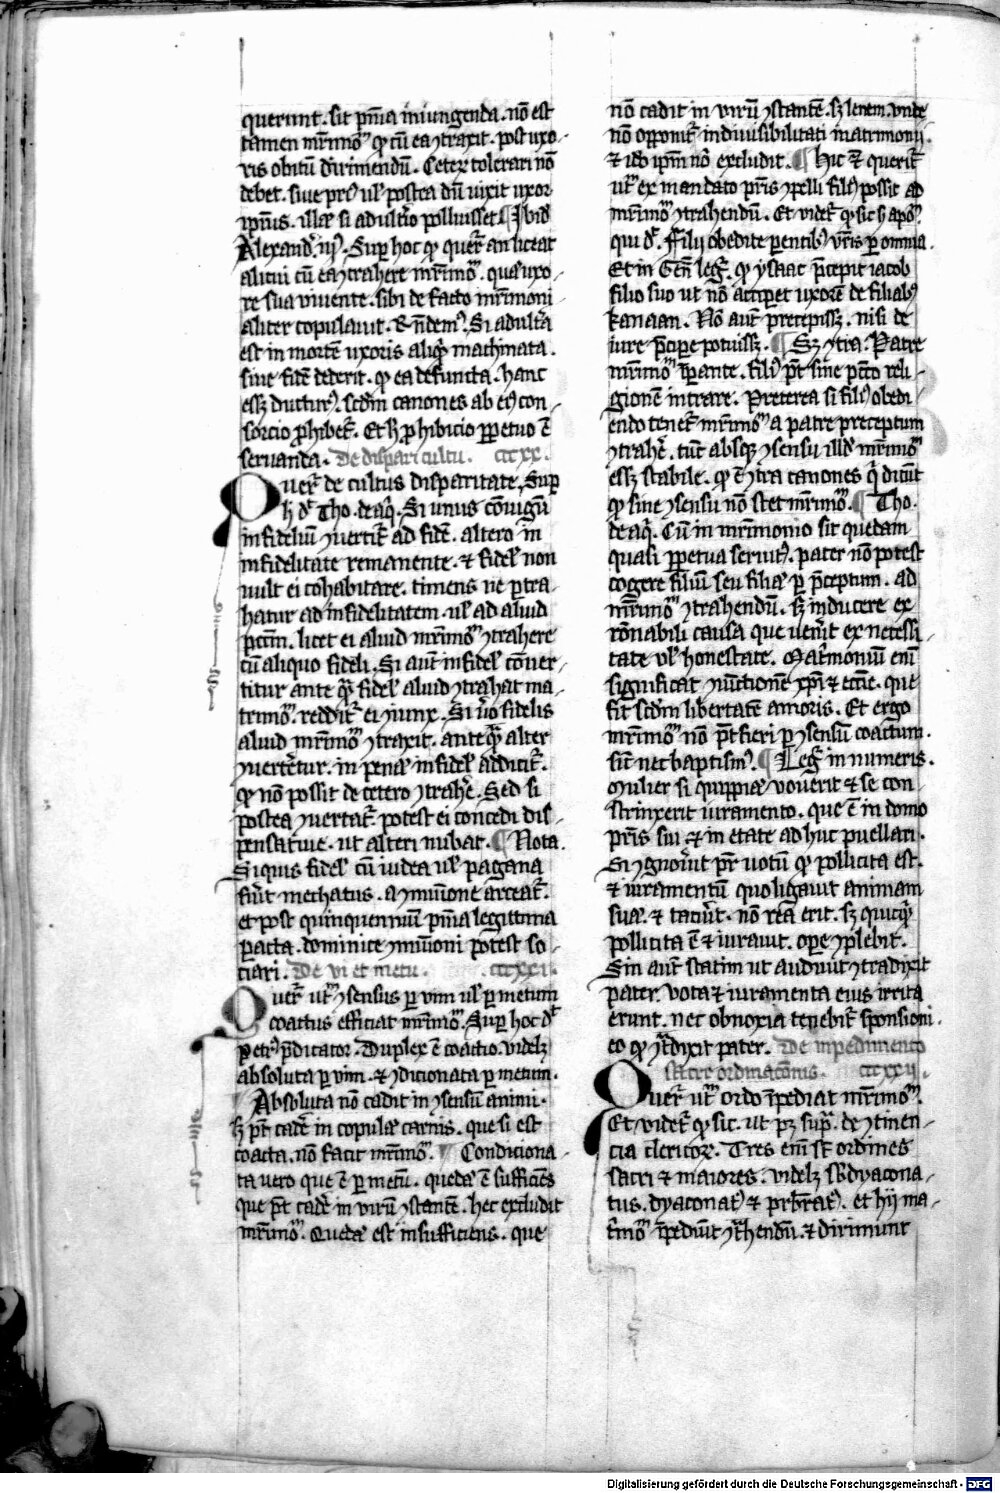 querunt. sit pn̄ia iniungenda. nō est
tamen mr̄imoᵐ qꝫ cū ea ꝯtraxit. post uxo-
ris obitū dirimendū. Cetez tolerari nō
debet. siue prꝰ ul̓ postea dū uixit uxor
ipīus. illā si adulterio polluisset ¶ Jbid̓
Alexand̓. iijꝰ. Sup hoc qꝫ quer̄ an liceat
alicui cū ea ꝯtrahere mr̄imoᵐ. quā uxo-
re sua uiuente. sibi de facto mr̄imoni
aliter copulauit. Rn̄demꝰ. Si adultᷓa
est in mortē uxoris aliqᵈ machinata.
siue fidē dederit. qꝫ ea defuncta. hanc
esset ducturꝰ. scdm̄ canones ab eiꝰ con-
sorcio ꝓhibet᷑. Et hͦ ꝓhibicio ꝑpetuo ē
seruanda. De dispari cultu. ccxx.
Quer᷑ de cultus disparitate. Sup
hͦ d᷑ Tho. de aq̓. Si unus cōiugū
infidelium ꝯuertit᷑ ad fidē. altero in
infidelitate remanente. ⁊ fidel̓ non
uult ei cohabitare. timens ne ꝑtra-
hatur ad infidelitatem. ul̓ ad aliud
pctm̄. licet ei aliud mr̄imoᵐ ꝯtrahere
cū aliquo fideli. Si aut̄ infidel̓ cōuer-
titur ante qᷓ fidel̓ aliud ꝯtrahat ma-
trimoᵐ. reddit᷑ ei ꝯiunx. Si uͦo fidelis
aliud mr̄imoᵐ ꝯtraxit. anteqᷓ alter
ꝯuerteret᷑. in penā infidel̓ addicit᷑.
qꝫ non possit de cetero ꝯtrahe᷑. Sed si
postea ꝯuertat᷑ potest ei concedi dis-
pensatiue. ut alteri nubat. ¶ Nota.
Si quis fidel̓ cū iudea ul̓ pagana
fuit mechatus. a ꝯmuīone arceat᷑.
et post quinquenniū pn̄ia legittima
ꝑacta. dominice ꝯmuīoni potest so-
ciari. De vi et metu. ccxxi.
Quer᷑ utᷓ ꝯsensus ꝑ vim ul̓ ꝑ metum
coactus efficiat mr̄imoᵐ. Sup hoc d᷑
petrꝰ p̄dicator. Duplex ē coactio. videlꝫ
absoluta ꝑ vim. ⁊ ꝯdicionata ꝑ metum.
Absoluta nō cadit in ꝯsensū animi.
hͦ pt̄ cade᷑ in copulā carnis. que si est
coacta. non facit mr̄imoᵐ. ¶ Condiciona-
ta uero que ē ꝑ metū. quedā ē sufficiēs
que pt̄ cade᷑ in virū ꝯstantē. hec excludit
mr̄imoᵐ. Quedā est insufficiens. que
nō cadit in virū ꝯstantē. sꝫ leuem. vnde
nō opponit᷑ indiuisibilitati matrimonij.
⁊ ideo ipm̄ nō excludit. ¶ Hic ⁊ querit᷑
utᷓ ex mandato pr̄is ꝯpelli filiꝰ possit ad
mr̄imoᵐ ꝯtrahendū. Et videt᷑ qꝫ sic ꝑ aposͫ.
qui d᷑. Filij obedite parentibꝰ vr̄is ꝑ omnia.
Et in Gen̄ legit᷑. qꝫ ysaac p̄cepit iacob
filio suo ut nō acciperet uxorē de filiabꝰ
kanaan. Nō aut̄ precepisset. nisi de
iure p̄cipere potuisset. ¶ Sꝫ ꝯtra. Patre
mr̄imoᵐ īperante. filiꝰ pt̄ sine pctō reli-
gionem intrare. Preterea si filiꝰ obedi-
endo tenet᷑ mr̄imoᵐ a patre preceptum
ꝯtrahe᷑. tūc absqꝫ ꝯsensu illiꝰ mr̄imoᵐ
esset stabile. qꝫ ē ꝯtra canones qͥ dicūt
qꝫ sine ꝯsensu non stet mr̄imoᵐ. ¶ Tho.
de aq̓. Cū in mr̄imonio sit quedam
quasi ꝑpetua seruitꝰ. pater nō potest
cogere filium seu filiā ꝑ p̄ceptum. ad
mr̄imoᵐ ꝯtrahendū. sꝫ inducere ex
rōnabili causa que uenerit ex necessi-
tate vl̓ honestate. Mat᷑moniū enī
significat ꝯiūctionē xp̄i ⁊ ecc̄e. que
fit scdm̄ libertatē amoris. Et ergo
mr̄imoᵐ nō pt̄ fieri ꝑ ꝯsensū coactum.
sic̄ nec baptismꝰ. ¶ Legit᷑ in numeris.
Mulier si quippiā vouerit ⁊ se con-
strinxerit iuramento. que ē in domo
pr̄is sui ⁊ in etate ad huc puellari.
Si ꝯgnouit pr̄ uotū qꝫ pollicita est.
⁊ iuramentū quo ligauit animam
suā. ⁊ tacuit. nō rea erit. sꝫ quicqᵈ
pollicita ē ⁊ iurauit. ope ꝯplebit.
Sin aut̄ statim ut audiuit ꝯtradixit
pater. vota ⁊ iuramenta eius irrita
erunt. nec obnoxia tenebit᷑ sponsioni.
eo qꝫ ꝯtᷓdixit pater. De impedimento
sacre ordinacōnis. ccxxij.
Quer᷑ utᷓ ordo īpediat mr̄imoᵐ.
Et videt᷑ qꝫ sic. ut pꝫ supᷓ. de ꝯtinen-
cia clericoꝝ. Tres enī sūt ordines
sacri ⁊ maiores. videlꝫ sb̄dyacona-
tus. dyaconatꝰ ⁊ prb̄ratꝰ. et hij ma-
t᷑moᵐ īpediūt ꝯtᷓhendū. ⁊ dirimunt
Digitalisierung gefördert durch die Deutsche Forschungsgemeinschaft - DFG